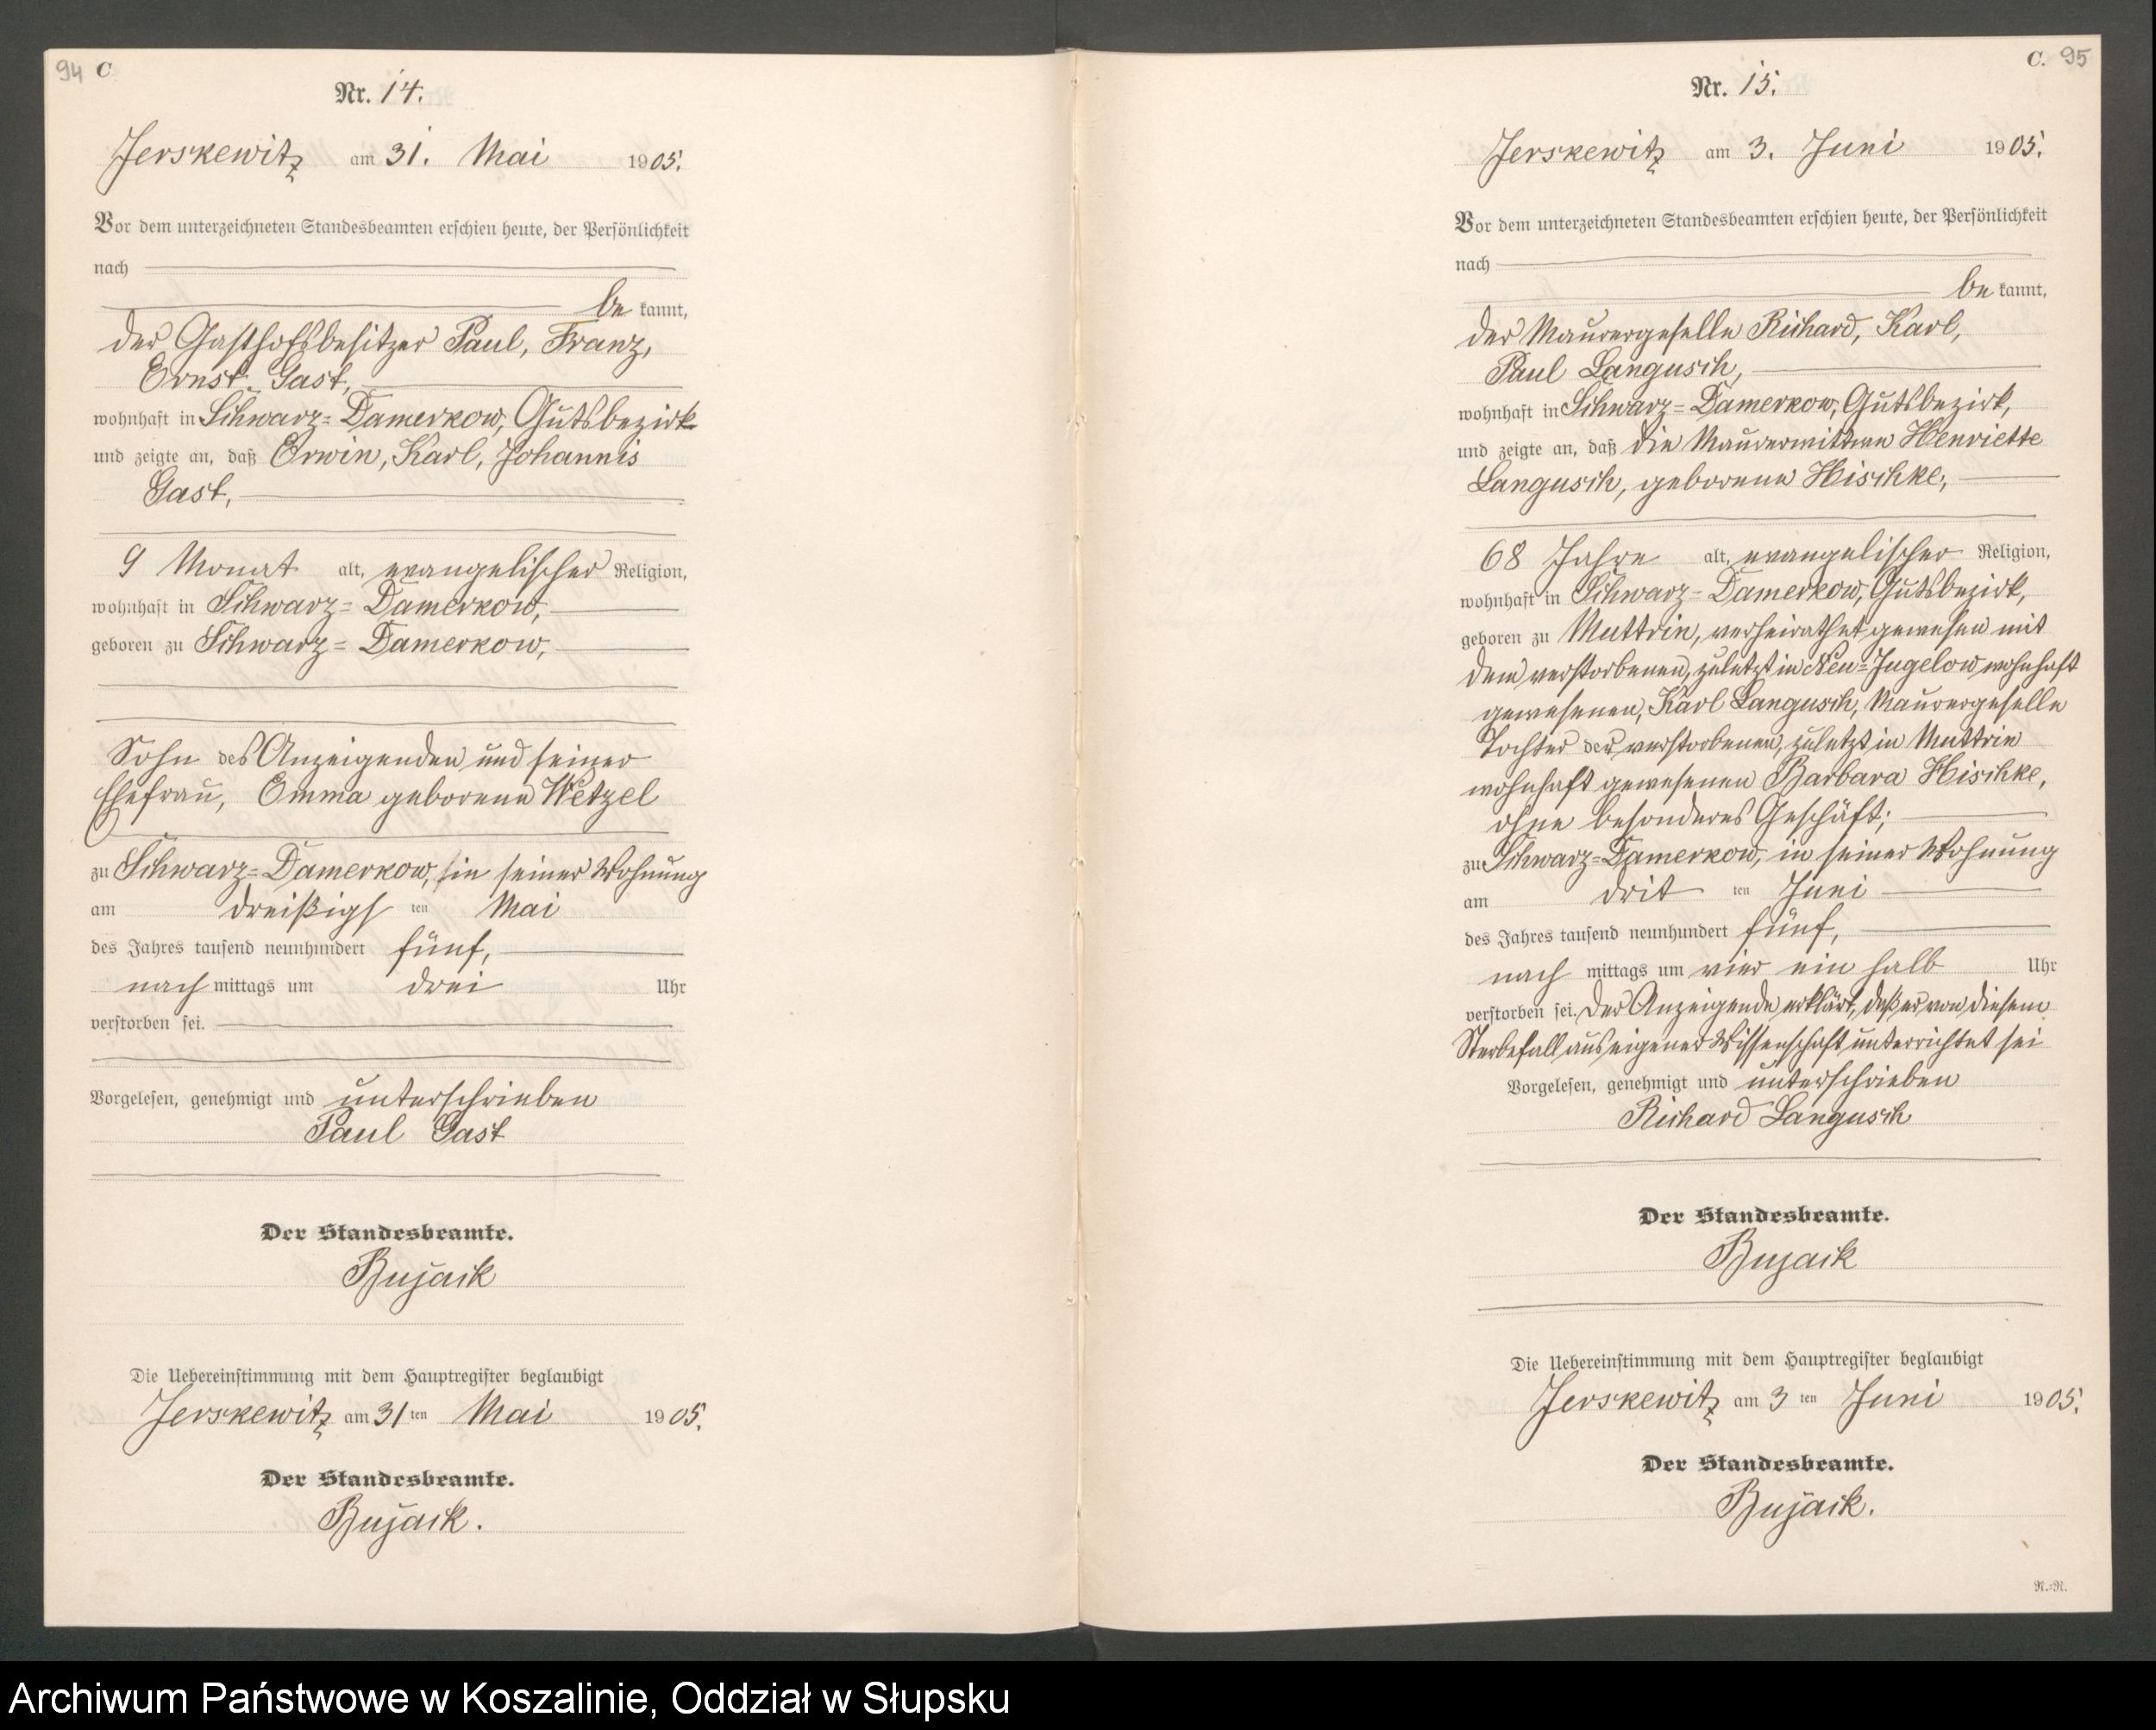 94 C
Nr. 14.
Jerskewitz am 31. Mai 1905.
Vor dem unterzeichneten Standesbeamten erschien heute, der Persönlichkeit
nach
be kannt,
der Gasthofsbesitzer Paul, Franz,
Ernst Gast,
wohnhaft in Schwarz=Damerkow, Gutsbezirk
und zeigte an, daß Erwin, Karl, Johannis
Gast,
9 Monat alt, evangelischer Religion,
wohnhaft in Schwarz=Damerkow,
geboren zu Schwarz=Damerkow,
Sohn des Anzeigenden und seiner
Ehefrau, Emma geborene Wetzel
zu Schwarz=Damerkow, in seiner Wohnung
am dreißigs ten Mai
des Jahres tausend neunhundert fünf,
nach mittags um drei Uhr
verstorben sei.
Vorgelesen, genehmigt und unterschrieben
Paul Gast
Der Standesbeamte.
Bujack
Die Uebereinstimmung mit dem Hauptregister beglaubigt
Jerskewitz am 31 ten Mai 1905.
Der Standesbeamte.
Bujack.
C. 95
Nr. 15.
Jerskewitz am 3. Juni 1905.
Vor dem unterzeichneten Standesbeamten erschien heute, der Persönlichkeit
nach
be kannt,
der Maurergeselle Richard, Karl,
Paul Langusch,
wohnhaft in Schwarz=Damerkow, Gutsbezirk,
und zeigte an, daß die Maurerwittwe Henriette
Langusch, geborene Hischke,
68 Jahre alt, evangelischer Religion,
wohnhaft in Schwarz=Damerkow, Gutsbezirk,
geboren zu Muttrin, verheirathet gewesen mit
dem verstorbenen, zuletzt in Neu=Jugelow wohnhaft
gewesenen, Karl Langusch, Maurergeselle
Tochter der verstorbenen, zuletzt in Muttrin
wohnhaft gewesenen Barbara Hischke,
ohne besonderes Geschäft;
zu Schwarz=Damerkow, in seiner Wohnung
am drit ten Juni
des Jahres tausend neunhundert fünf,
nach mittags um vier ein halb Uhr
verstorben sei. Der Anzeigende erklärt, daß er von diesem
Sterbefall aus eigener Wissenschaft unterrichtet sei
Vorgelesen, genehmigt und unterschrieben
Richard Langusch
Der Standesbeamte.
Bujack
Die Uebereinstimmung mit dem Hauptregister beglaubigt
Jerskewitz am 3 ten Juni 1905.
Der Standesbeamte.
Bujack.
N.=N.
Archiwum Państwowe w Koszalinie, Oddział w Słupsku